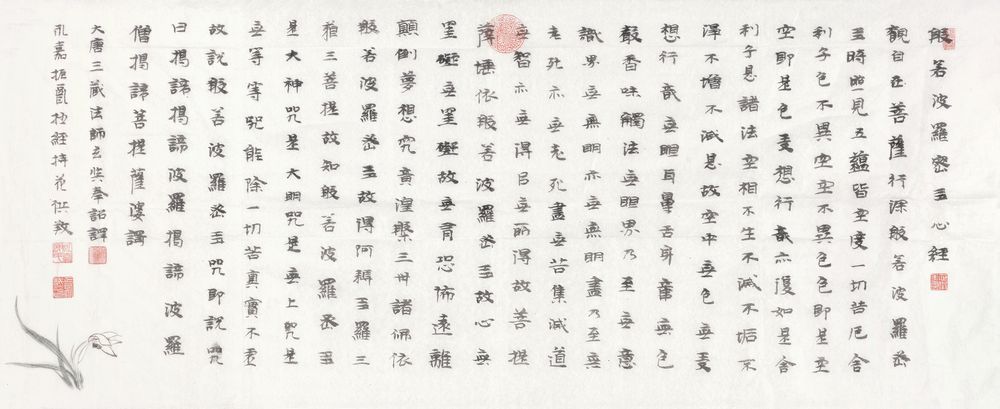 般若波羅密多心經
觀自在菩薩行深般若波羅蜜
多時照見五蘊皆空度一切苦厄舍
利子色不異空空不異色色即是空
空即是色受想行識亦復如是舍
利子是諸法空相不生不滅不垢不
淨不增不減是故空中無色無受
想行識無眼耳鼻舌身意無色
聲香味觸法無眼界乃至無意
識界無無明亦無無明盡乃至無
老死亦無老死盡無苦集滅道
無智亦無得以無所得故菩提
薩埵依般若波羅蜜多故心無
罣礙無罣礙故無有恐怖遠離
顛倒夢想究竟涅槃三世諸佛依
般若波羅蜜多故得阿耨多羅三
藐三菩提故知般若波羅蜜多
是大神咒是大明咒是無上咒是
無等等咒能除一切苦真實不虛
故說般若波羅蜜多咒即說咒
曰揭諦揭諦波羅揭諦波羅
僧揭諦菩提薩婆訶
大唐三藏法師玄奘奉詔譯
永嘉振經持花供